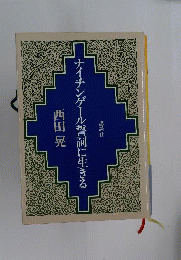 ナイチンゲール誓詞に生きる
西田晃